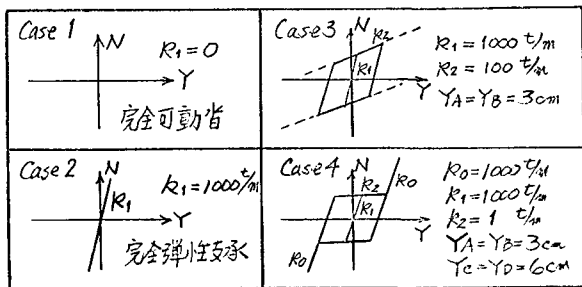 Case 1
N
k₁=0
Y
完全可動省
Case 2
N
k₁=1000t/m
k₁
Y
完全弾性支承
Case 3
N
k₂
k₁
Y
k₁=1000 t/m
k₂=100 t/m
YA=YB=3cm
Case 4
N
k₂
k₀
k₁
Y
k₀
k₀=1000 t/m
k₁=1000 t/m
k₂=1 t/m
YA=YB=3cm
YC=YD=6cm